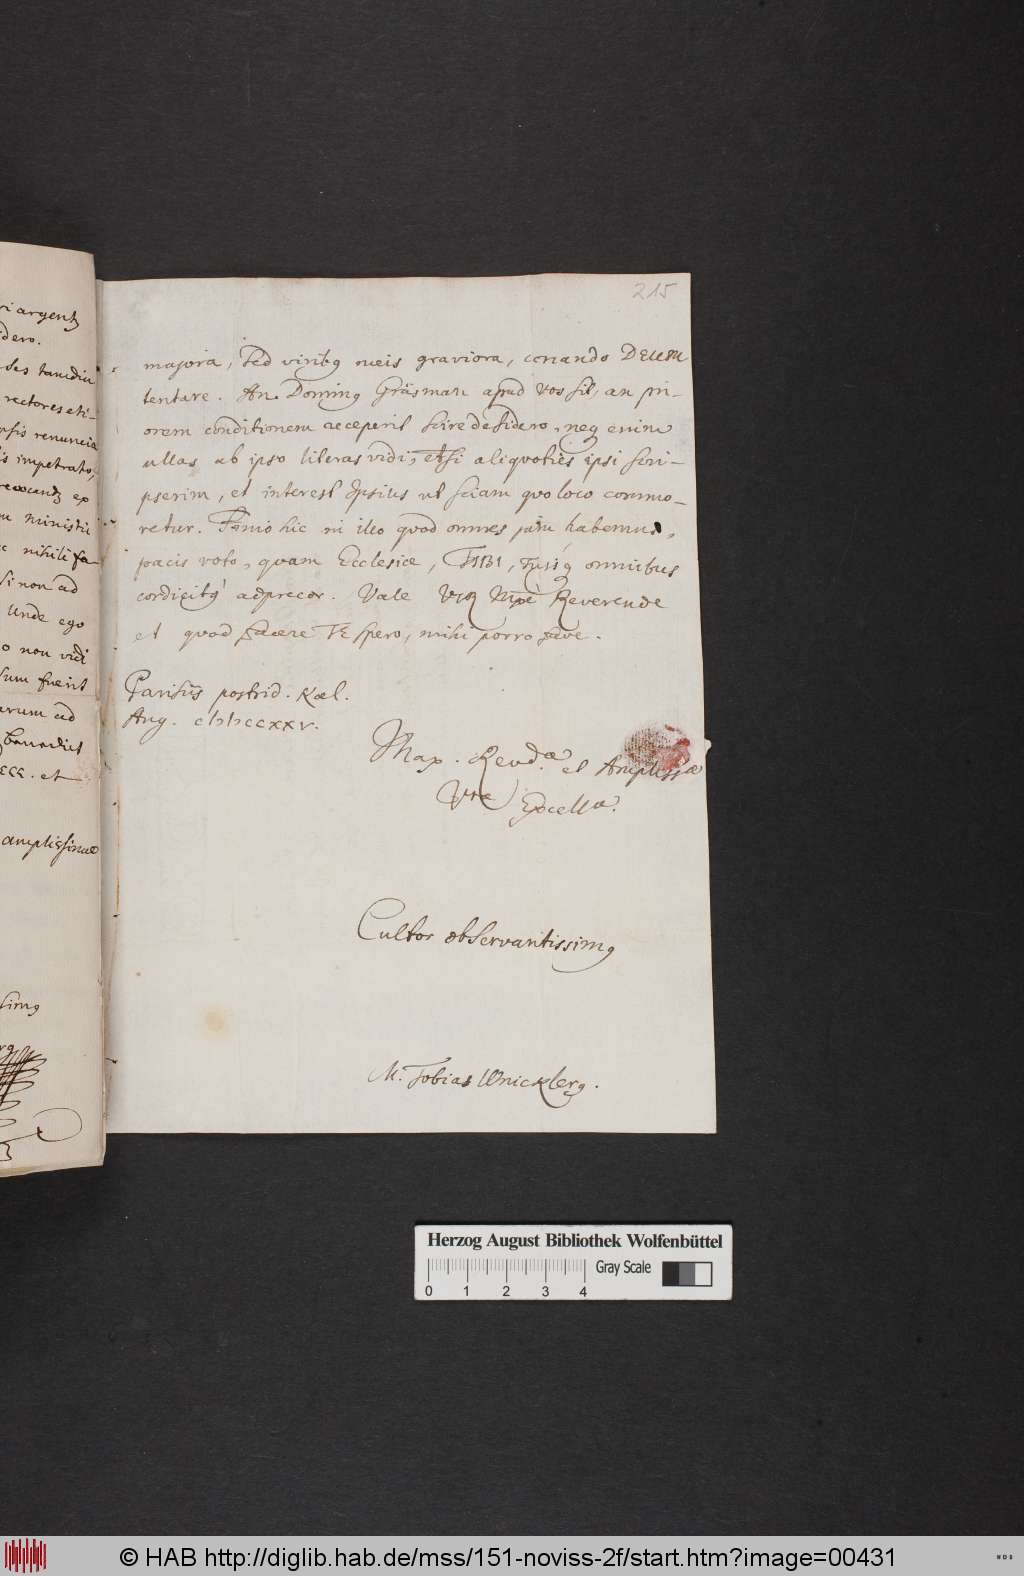 ri argentj
dero.
des tamdiu
rectores eti-
psis renuncia
is impetrato,
revocandj ex
m Ministri
c nihili fa-
si non ad
Unde ego
o non vidi
sum fuerit
arum ad
benedict
et
amplissimae
simq
215
majora, sed viribq meis graviora, conando DEUM
tentare. An Dominq Gräsman apud Vos sit, an pri-
orem conditionem acceperit scire desidero, neq enim
ullas ab ipso literas vidi, etsi aliquoties ipsi scri-
pserim, et interest Ipsius ut sciam quo loco commo-
retur. Finio hic in illo quod omnes jam habemus,
pacis voto, quam Ecclesiae, TIBI, Tuisq omnibus
adprecor. Vale Vir Mxe Reverende
et quod facere Te spero, mihi porro fave.
Parisiis postrid. Kal.
Aug. cIↃIↃccxxv.
Max. Revdae et Ampliss ae
Vrae Excellae.
Cultor observantissimq
M. Tobias Wnickler.
Herzog August Bibliothek Wolfenbüttel
Gray Scale
0 1 2 3 4
© HAB http://diglib.hab.de/mss/151-noviss-2f/start.htm?image=00431